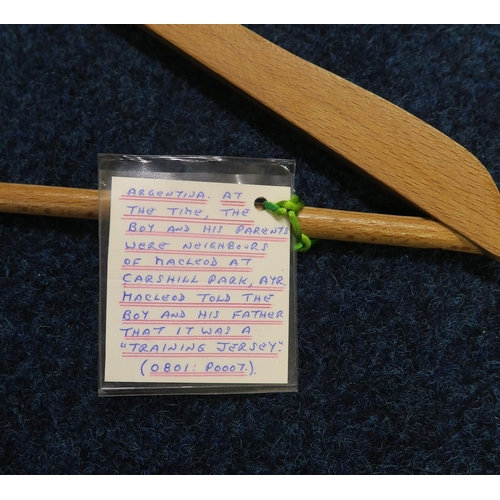 ARGENTINA. AT
THE TIME, THE
BOY AND HIS PARENTS
WERE NEIGHBOURS
OF MACLEOD AT
CARSHILL PARK, AYR.
MACLEOD TOLD THE
BOY AND HIS FATHER
THAT IT WAS A
"TRAINING JERSEY."
(0801: P0007).